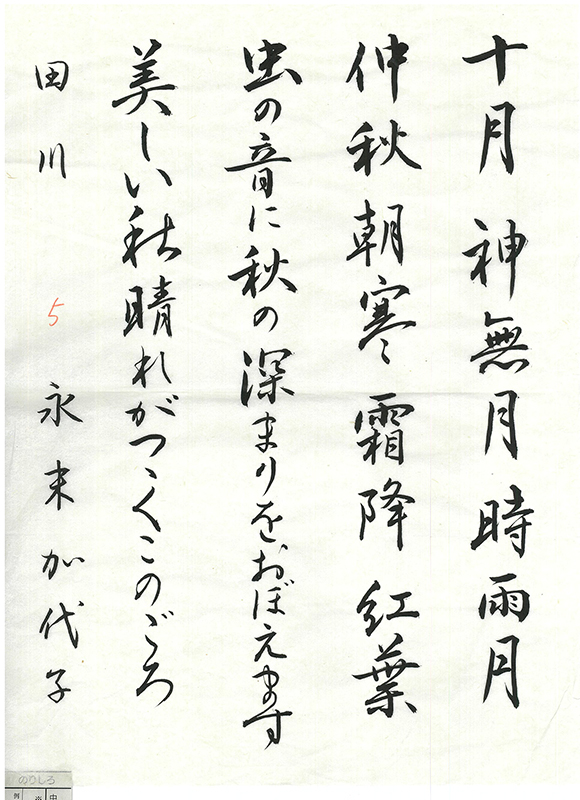 十月神無月時雨月
仲秋朝寒霜降紅葉
虫の音に秋の深まりをおぼえます
美しい秋晴れがつゞくこのごろ
田川 5 永末加代子
のりしろ